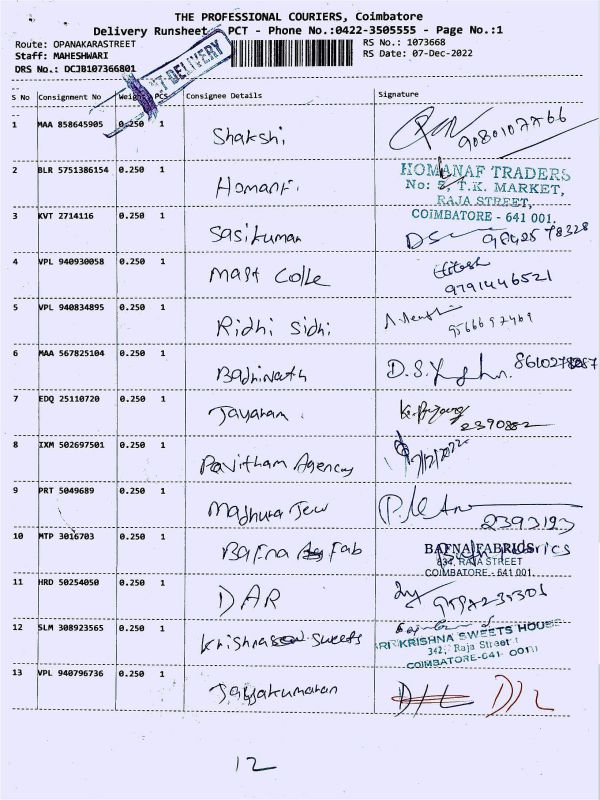 THE PROFESSIONAL COURIERS, Coimbatore
Delivery Runsheet PCT - Phone No.:0422-3505555 - Page No.:1
Route: OPANAKARASTREET RS No.: 1073668
Staff: MAHESHWARI RS Date: 07-Dec-2022
DRS No.: DCJB107366801
DELIVERY
S No Consignment No Weight PCS Consignee Details Signature
1 MAA 858645905 0.250 1 Shakshi 9080107766
2 BLR 5751386154 0.250 1 Homanf. HOMANAF TRADERS
No: 5, T.K. MARKET,
RAJA STREET,
COIMBATORE - 641 001.
3 KVT 2714116 0.250 1 Sasikumar 9842578328
4 VPL 940930058 0.250 1 Mast Colle Hitesh
9791446521
5 VPL 940834895 0.250 1 Ridhi Sidhi
9566692469
6 MAA 567825104 0.250 1 Badrinath D.S.
7 EDQ 25110720 0.250 1 Jayaram
2390882
8 IXM 502697501 0.250 1 Pavitham Agency 7/12/2022
9 PRT 5049689 0.250 1 Madhura Jew
2393193
10 MTP 3016703 0.250 1 Bafna Fab BAFNA FABRICS
834, RAJA STREET
COIMBATORE - 641 001.
11 HRD 50254050 0.250 1 DAR
12 SLM 308923565 0.250 1 Krishna Sweets
SRI KRISHNA SWEETS HOUSE
342, Raja Street
COIMBATORE-641 001
13 VPL 940796736 0.250 1 Jayakumaran
12